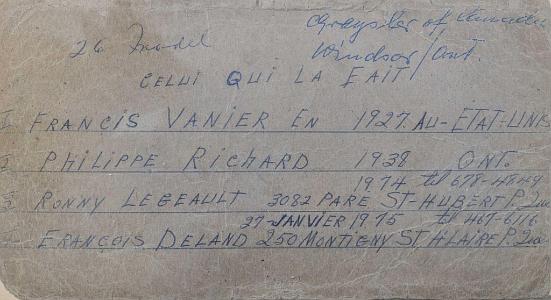 26 Model
Chrysler of Canada
Windsor/Ont.
CELUI QUI LA FAIT
I FRANCIS VANIER EN 1927. AU-ETAT-UNIS
2 PHILIPPE RICHARD 1938 ONT.
1974 tel 678-4849
3 RONNY LEGEAULT 3082 PARE ST-HUBERT P. Que
27-JANVIER 1975 tel 467-6116
4 FRANÇOIS DELAND 250 MONTIGNY ST, HLAIRE P. Que